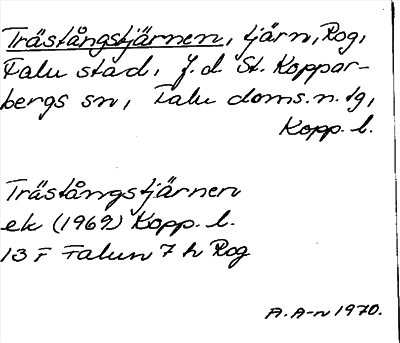 Trästångstjärnen, tjärn, Rog,
Falu stad, f.d. St. Koppar-
bergs sn, Falu doms.n. tg,
Kopp. l.
Trästångstjärnen
ek (1969) Kopp. l.
13 F Falun 7 h Rog
A. A-n 1970.